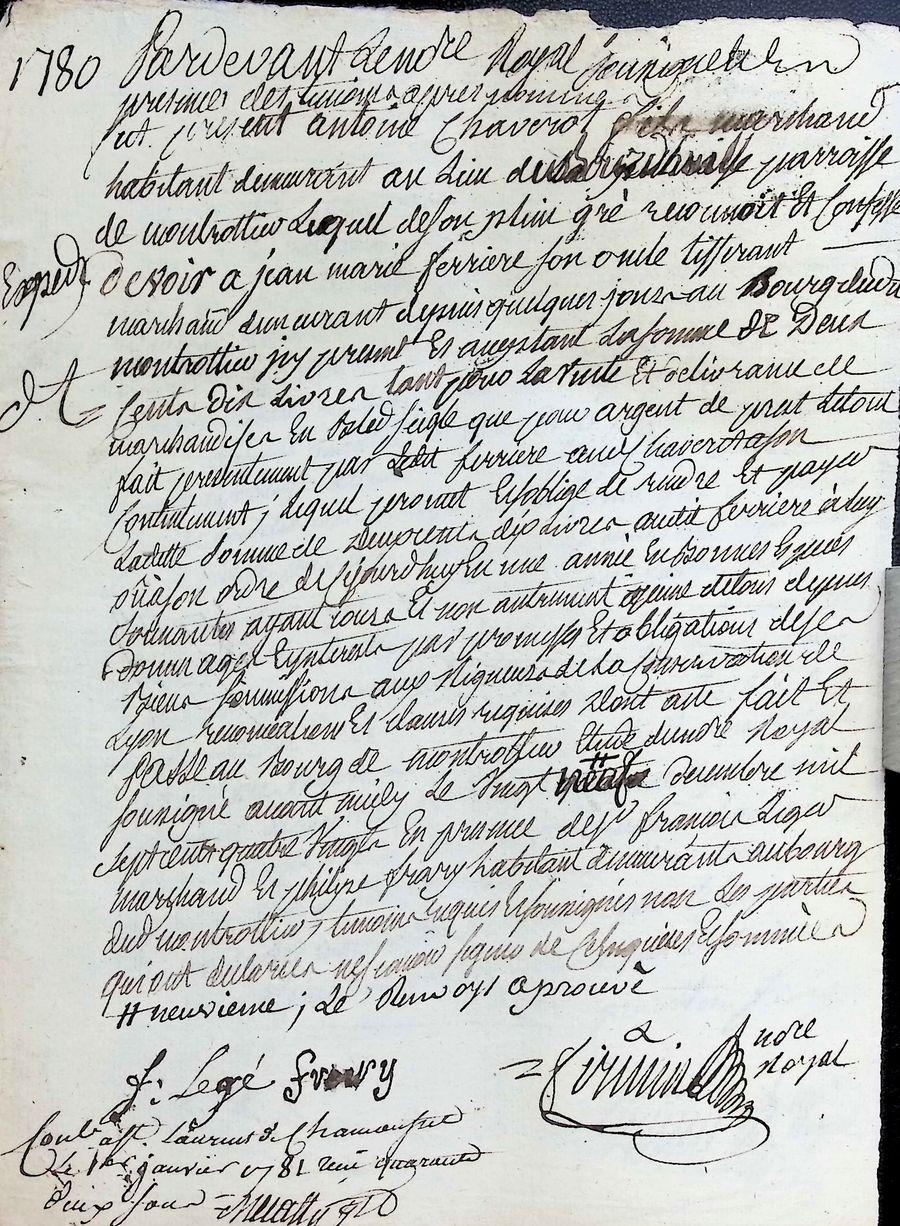 1780 Pardevant Le nore Royal sousigné Et En
presence des temoins apres nommés
fut present antoine Chaverot fils marchand
habitant demeurant au Lieu de parroisse
de montrottier Lequel de son plein gré reconnoit Et Confesse
Exped devoir a jean marie ferriere son oncle tisserant
marchand demeurant depuis quelques jours au Bourg dudit
montrottier icy present Et acceptant La somme de Deux
Cents Dix Livres tant pour La vente Et delivrance de
marchandises En Bled seigle que pour argent de pret Letout
fait presentement par Ledit ferriere audit Chaverot a son
Contentement ; Lequel promet Et soblige de rendre Et payer
Ladette somme de Deux cents dix Livres audit ferriere à luy
où à son ordre de Cejourdhuy En une année En Bonnes Especes
sonnantes ayant cours Et non autrement apeine de tous depens
dommages Et interests par promesses Et obligations de ses
Biens soumissions aux Rigueurs de La Conservation de
Lyon renonciations Et clauses requises Dont acte fait Et
passé au Bourg de montrottier Etude dunore Royal
sousigné avant midy Le vingt # decembre mil
sept cents quatre vingts En presence de sr francois Leger
marchand Et philipe frary habitants demeurants au bourg
dud montrottier, temoins requis Et sousignés non Les parties
qui ont declarés ne scavoir signer de Ce Enquises Et sommées
# neuvieme ; Le Renvoy aprouvé
f. Legé frary
nore
Royal
Conlé a St Laurens de Chamousset
Le 1er janvier 1781 recu quarante
deux sous